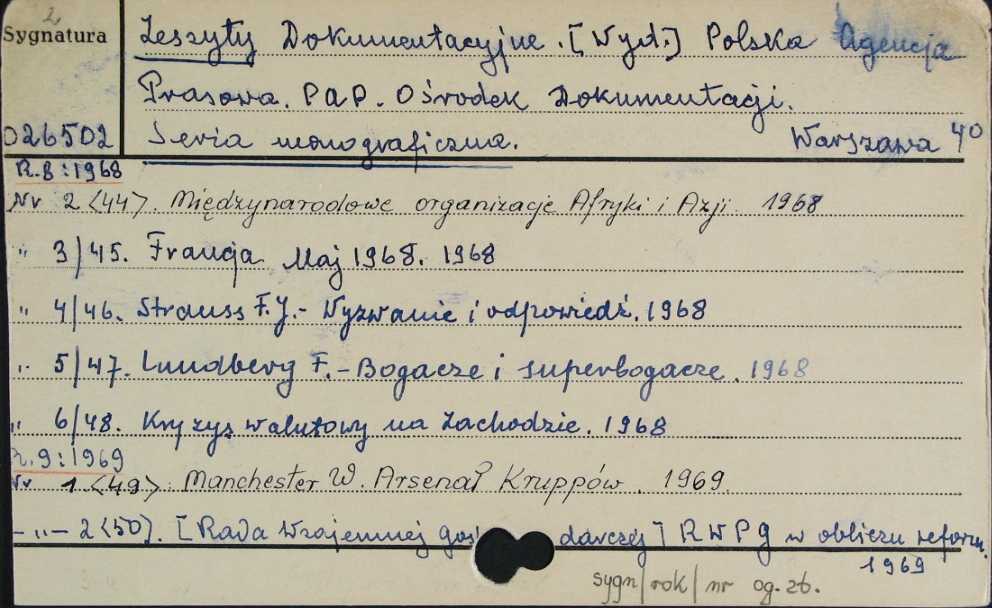 2
Sygnatura
Zeszyty Dokumentacyjne. [Wyd.] Polska Agencja
Prasowa. PAP. Ośrodek Dokumentacji.
026502 Seria monograficzna. Warszawa 40
R.8:1968
Nr 2<44>. Międzynarodowe organizacje Afryki i Azji 1968
" 3/45. Francja Maj 1968. 1968
" 4/46. Strauss F.J.- Wyzwanie i odpowiedź. 1968
" 5/47. Lundberg F.-Bogacze i superbogacze. 1968
" 6/48. Kryzys walutowy na Zachodzie. 1968
R.9:1969
Nr 1<49>. Manchester W. Arsenał Kruppów. 1969.
-"- 2(50). [Rada Wzajemnej gos darczej] RWPG w obliczu reform.
1969
sygn/rok/nr og.zb.